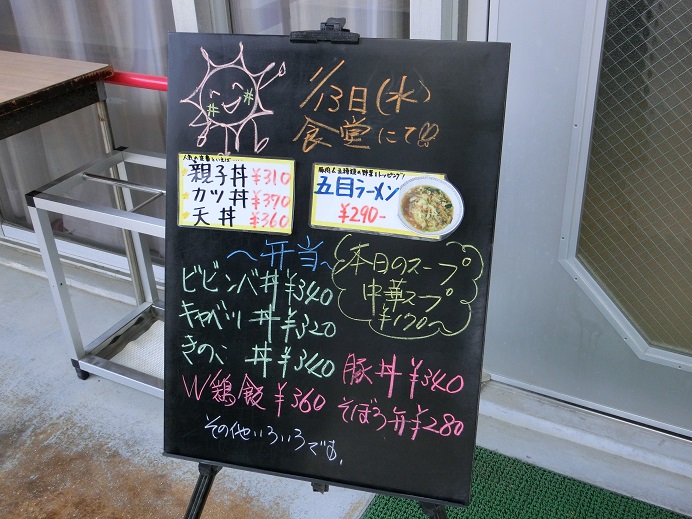 1/13日(水)
食堂にて
人気の定番といえば…
親子丼 ¥310
カツ丼 ¥390
天丼 ¥360
五目ラーメン
¥290-
～弁当～
本日のスープ
中華スープ
¥170～
ビビンバ丼 ¥340
キャベツ丼 ¥320
きのこ丼 ¥340
W鶏飯 ¥360
豚丼 ¥340
そぼろ弁 ¥280
その他いろいろです。